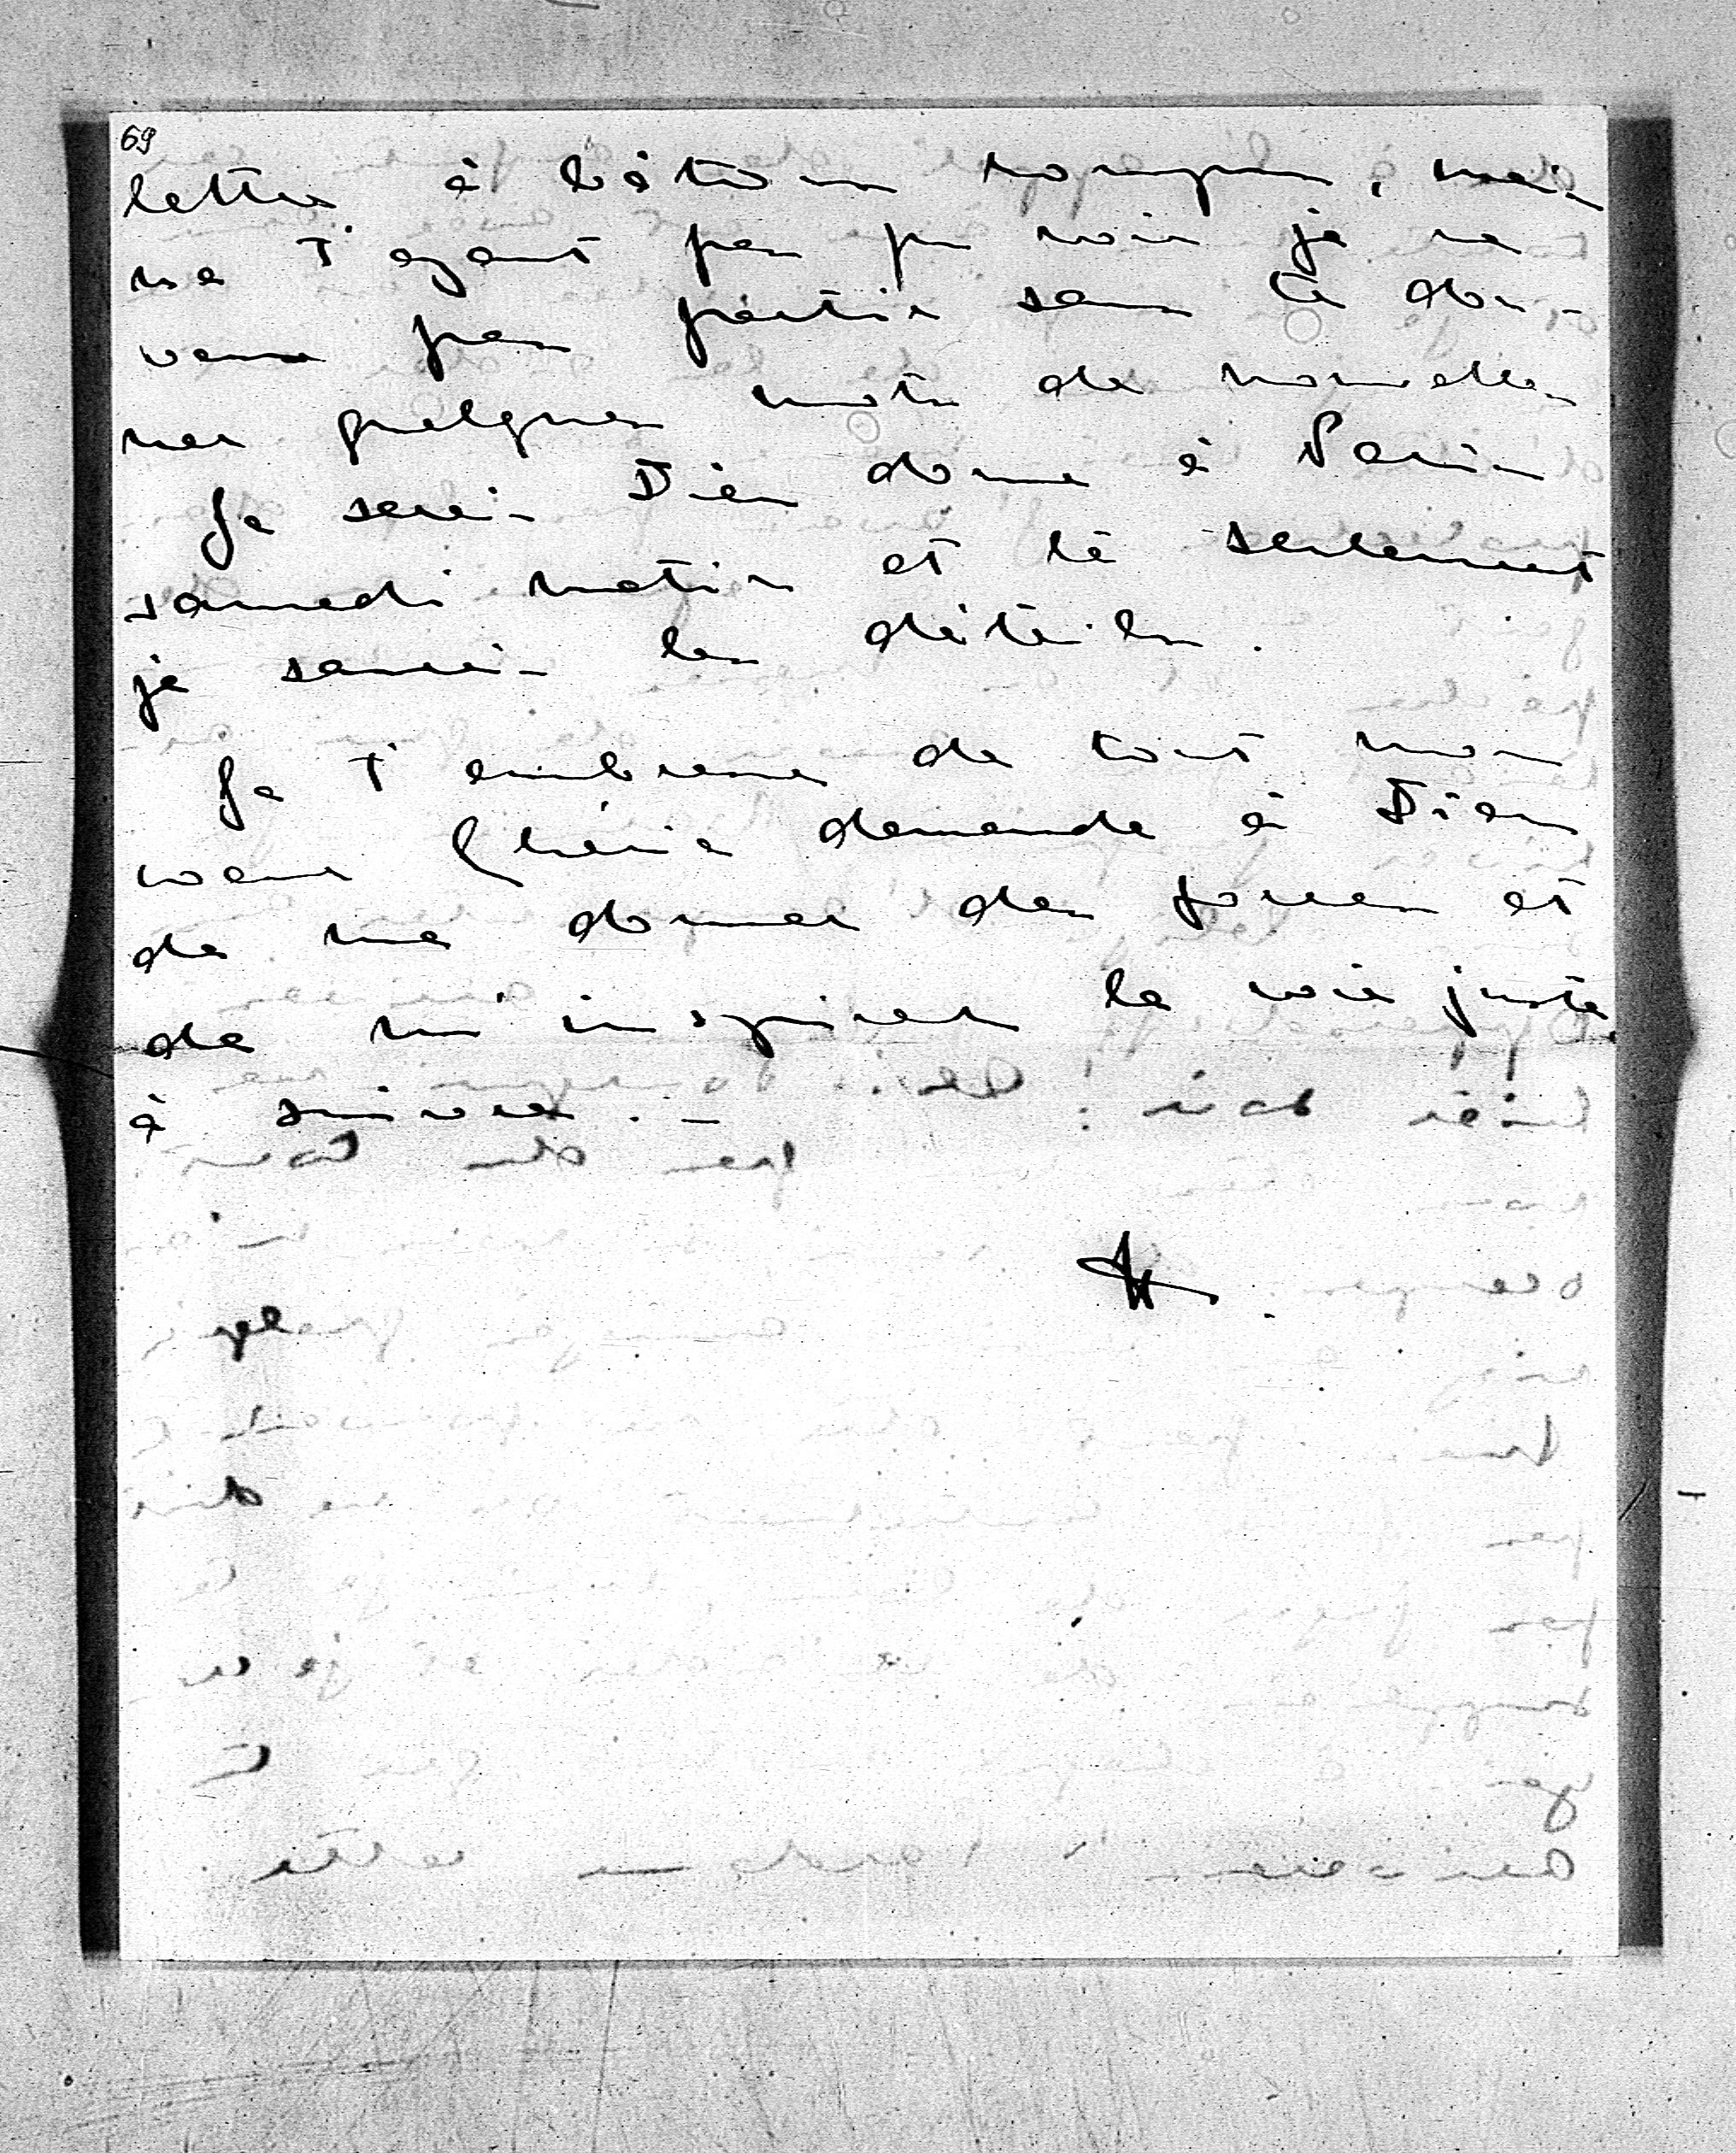 69
lettre à bâtons rompus, mais
ne t'ayant pas pu voir je ne
veux pas partir sans te don-
ner quelques mots de nouvelles
Je serai Dieu donne à Paris
samedi matin et là seulement
je saurai les détails.
Je t'embrasse de tout mon
coeur Chérie demande à Dieu
de me donner des forces et
de m'inspirer la voie juste
à suivre. –